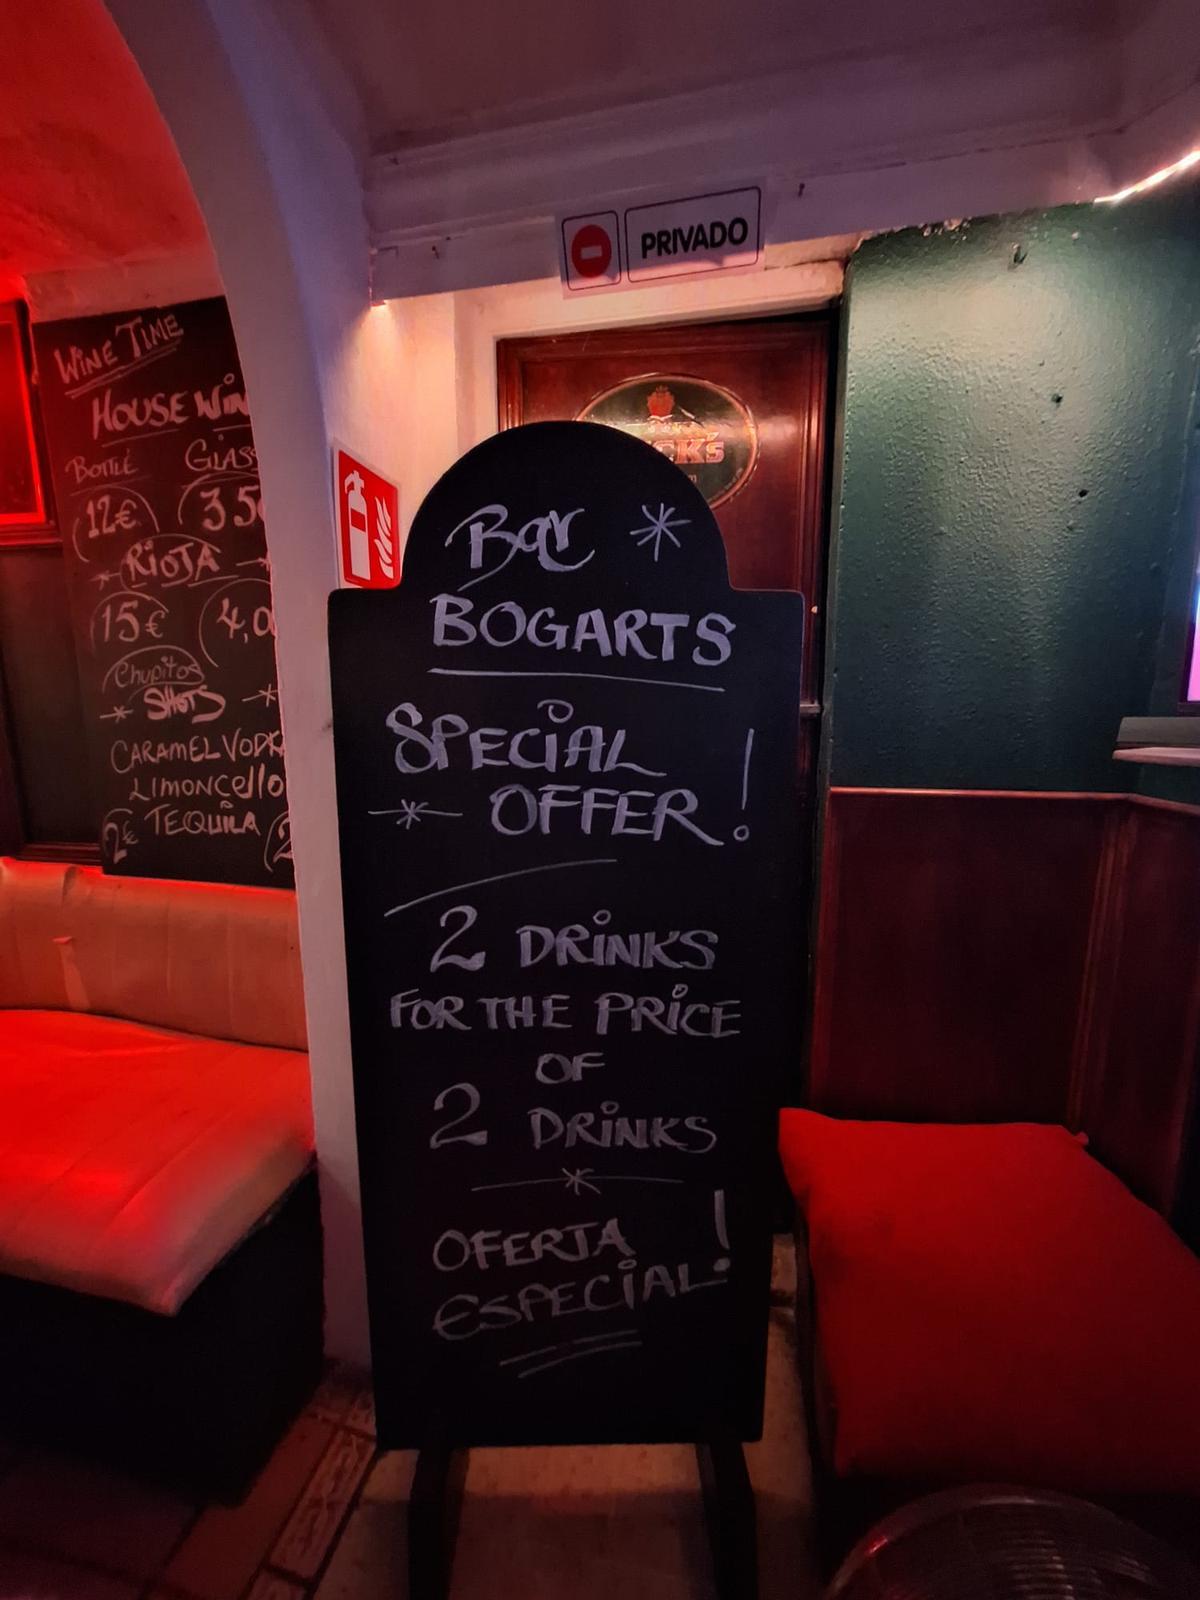 PRIVADO
WINE TIME
HOUSE WIN
BOTTLE GLASS
12€ 3 50
RIOJA
15€ 4,0
Chupitos
SHOTS
CARAMEL VODK
LIMONCELLO
TEQUILA
2€ 2
CK's
Bar
BOGARTS
SPECIAL
OFFER!
2 DRINKS
FOR THE PRICE
OF
2 DRINKS
OFERTA
ESPECIAL!